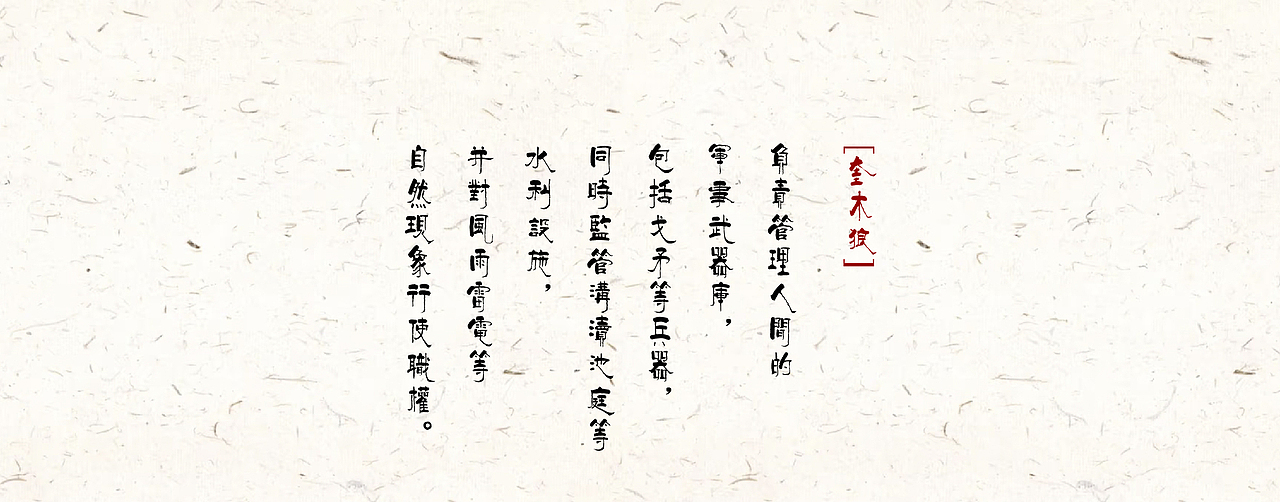 [奎木狼]
負責管理人間的
軍事武器庫，
包括戈矛等兵器，
同時監管溝瀆池庭等
水利設施，
并對風雨雷電等
自然現象行使職權。